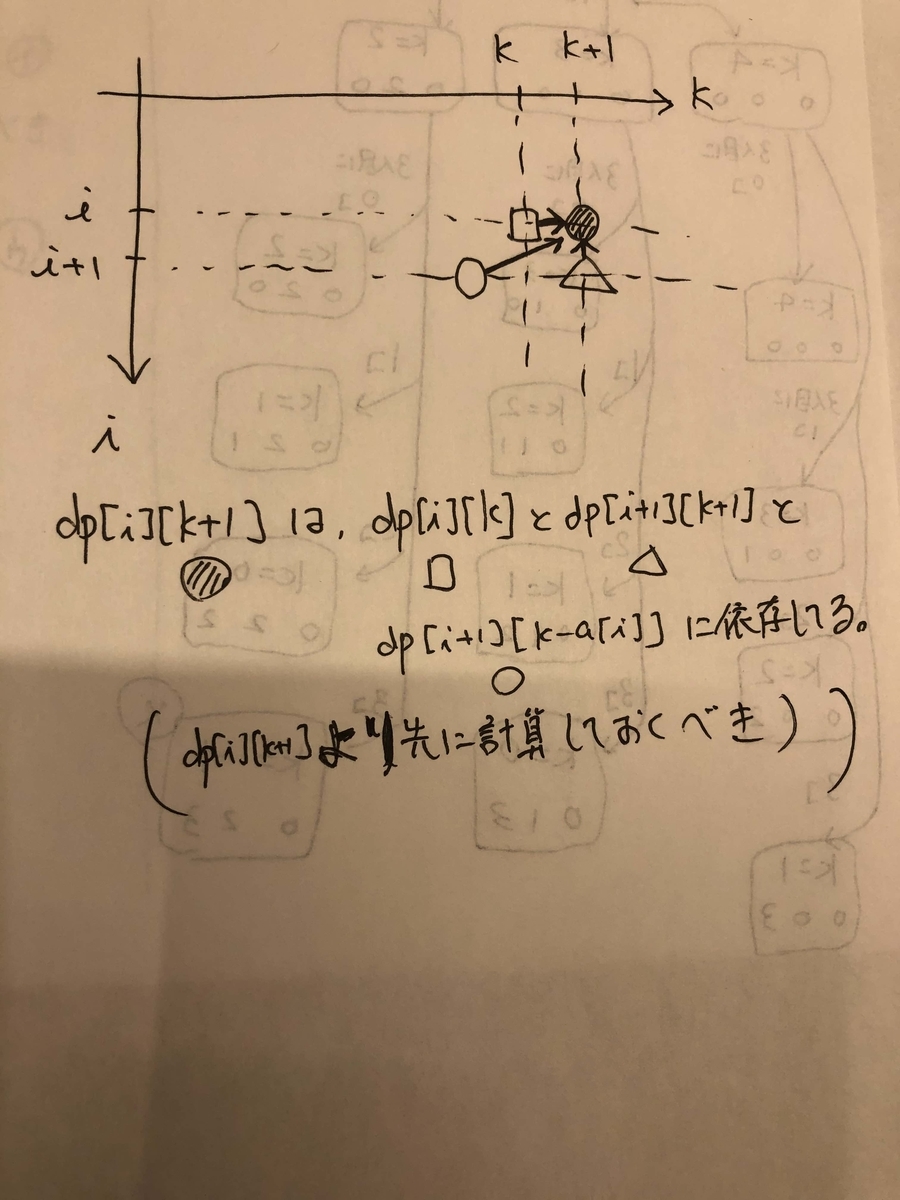 k k+1
k
i
i+1
i
dp[i][k+1] は、dp[i][k] と dp[i+1][k+1] と
dp[i+1][k-a[i]] に依存してる。
(dp[i][k+1] より先に計算しておくべき)